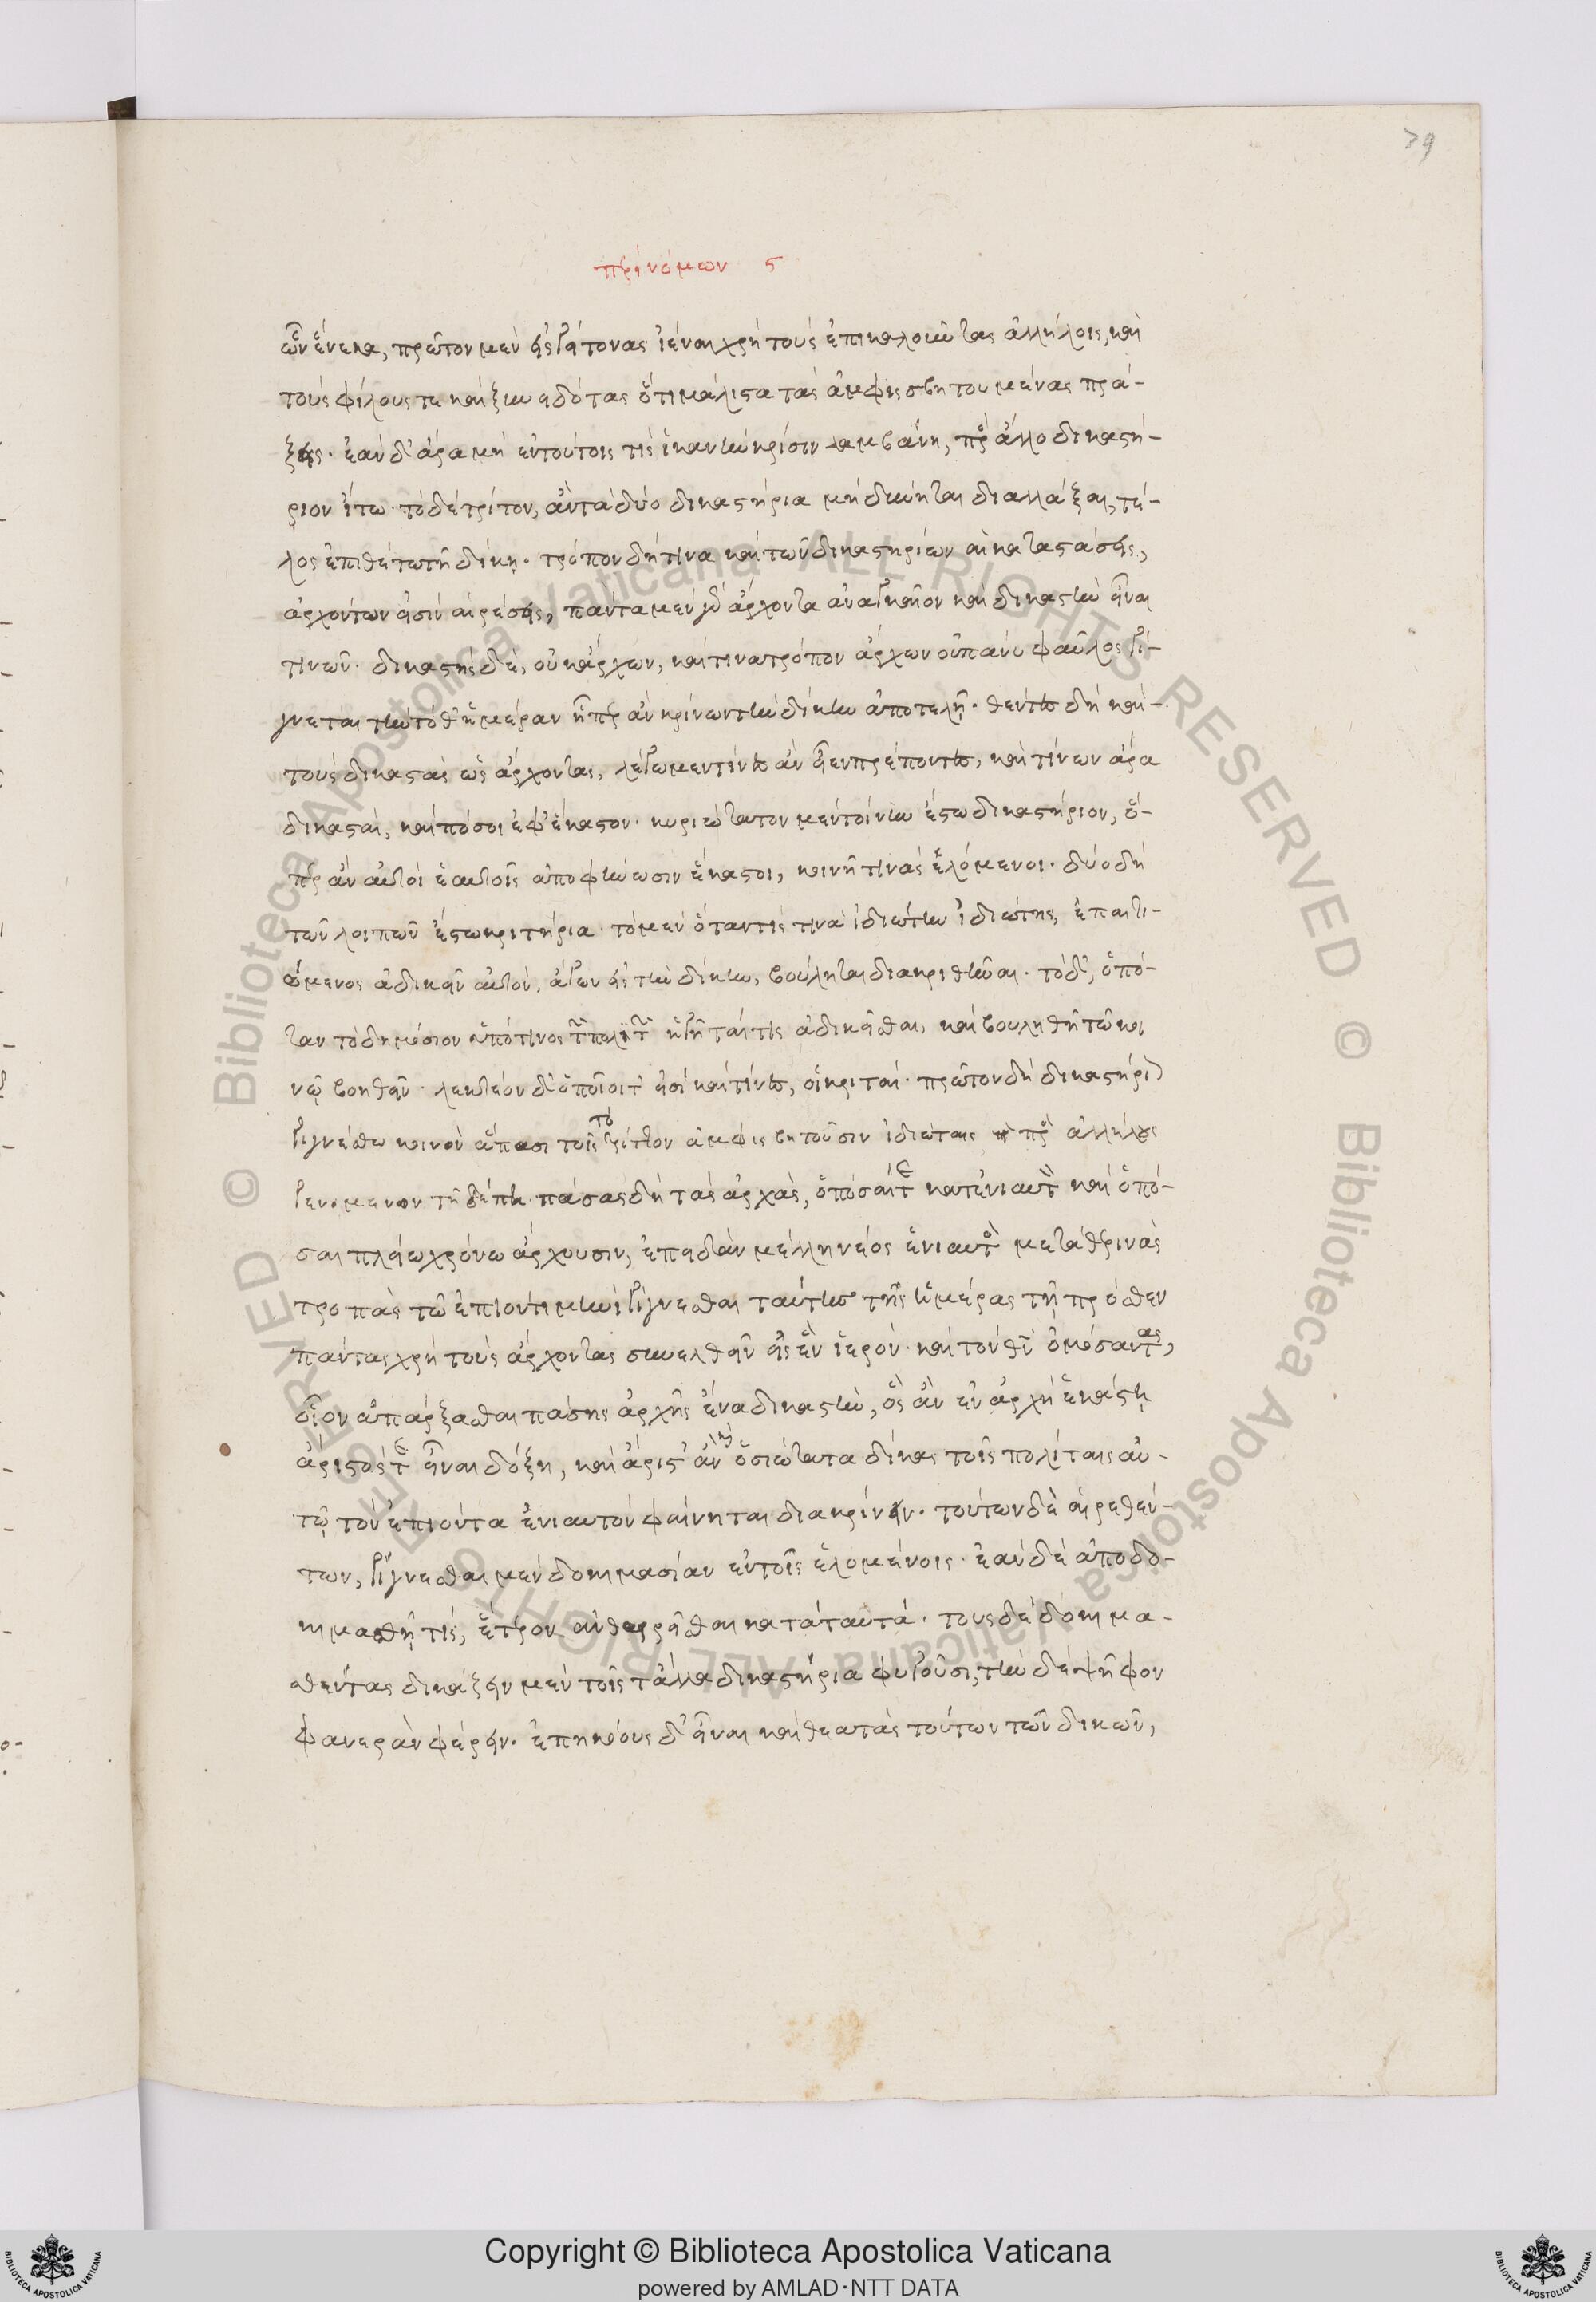 79
περὶ νόμων ϛ
ὧν ἕνεκα, πρῶτον μὲν εἰς γείτονας ἰέναι χρὴ τοὺς ἐπικαλοῦντας ἀλλήλοις, καὶ
τοὺς φίλους τε καὶ ξυνειδότας ὅτι μάλιστα τὰς ἀμφισβητουμένας πρά-
ξεις. ἐὰν δ' ἄρα μὴ ἐν τούτοις τὶς ἱκανὴν κρίσιν λαμβάνη, πρὸς ἄλλο δικαστή-
ριον ἴτω· τὸ δὲ τρίτον, ἂν τὰ δύο δικαστήρια μὴ δύνηται διαλλάξαι, τέ-
λος ἐπιθέτω τῆ δίκῃ. τρόπον δή τινα καὶ τῶν δικαστηρίων αἱ καταστάσεις,
ἀρχόντων εἰσὶν αἱρέσεις, πάντα μὲν γὰρ ἄρχοντα ἀναγκαῖον καὶ δικαστὴν εἶναι
τινῶν· δικαστὴς δὲ, οὐκ ἄρχων, καί τινα τρόπον ἄρχων οὐ πάνυ φαῦλος γί-
γνεται τὴν τόθ' ἡμέραν ᾗπερ ἂν κρίνων τὴν δίκην ἀποτελῇ. θέντες δὴ καὶ
τοὺς δικαστὰς ὡς ἄρχοντας, λέγωμεν τίνες ἂν εἶεν πρέποντες, καὶ τίνων ἄρα
δικασταὶ, καὶ πόσοι ἐφ' ἕκαστον· κυριώτατον μὲν τοίνυν ἔστω δικαστήριον, ὅ-
περ ἂν αὐτοὶ ἑαυτοῖς ἀποφήνωσιν ἕκαστοι, κοινῆ τινὰς ἑλόμενοι. δύο δὴ
τῶν λοιπῶν ἔστω κριτήρια· τὸ μὲν ὅταν τίς τινα ἰδιώτην ἰδιώτης, ἐπαιτι-
ώμενος ἀδικεῖν αὐτὸν, ἄγων εἰς τὴν δίκην, βούληται διακριθῆναι. τὸ δ', ὁπό-
ταν τὸ δημόσιον ὑπό τινος τῶν πολιτῶν ἡγῆταί τις ἀδικεῖσθαι, καὶ βουληθῆ τῶ κοι
νῷ βοηθεῖν· λεκτέον δ' ὁποῖοί τ' εἰσὶ καὶ τίνες, οἱ κριταί. πρῶτον δὴ δικαστήριον
γιγνέσθω κοινὸν ἅπασι τοῖς τὸ τρίτον ἀμφισβητοῦσιν ἰδιώταις πρὸς ἀλλήλους
γενόμενον τῆδέ πῃ· πάσας δὴ τὰς ἀρχὰς, ὁπόσαι τε κατ' ἐνιαυτὸν καὶ ὁπό-
σαι πλείω χρόνω ἄρχουσιν, ἐπειδὰν μέλλη νέος ἐνιαυτὸς μετὰ θερινὰς
τροπὰς τῶ ἐπιόντι μηνὶ γίγνεσθαι ταύτης τῆς ἡμέρας τῇ πρόσθεν
πάντας χρὴ τοὺς ἄρχοντας συνελθεῖν εἰς ἓν ἱερόν· καὶ τὸν θεὸν ὀμόσαντας,
οἷον ἀπάρξασθαι πάσης ἀρχῆς ἕνα δικαστὴν, ὃς ἂν ἐν ἀρχῇ ἑκάστῃ
ἄριστός τε εἶναι δόξη, καὶ ἄριστ' ἂν ὁσιώτατα δίκας τοῖς πολίταις αὐ-
τῷ τὸν ἐπιόντα ἐνιαυτὸν φαίνηται διακρίνειν. τούτων δὲ αἱρεθέν-
των, γίγνεσθαι μὲν δοκιμασίαν ἐν τοῖς ἑλομένοις· ἐὰν δὲ ἀποδο-
κιμασθῇ τίς, ἕτερον ἀνθαιρεῖσθαι κατὰ ταυτά. τοὺς δὲ δοκιμα-
σθέντας δικάζειν μὲν τοῖς τἆλλα δικαστήρια φυγοῦσι, τὴν δὲ ψῆφον
φανερὰν φέρειν. ἐπηκόους δ' εἶναι καὶ θεατὰς τούτων τῶν δικῶν,
Copyright © Biblioteca Apostolica Vaticana
powered by AMLAD·NTT DATA